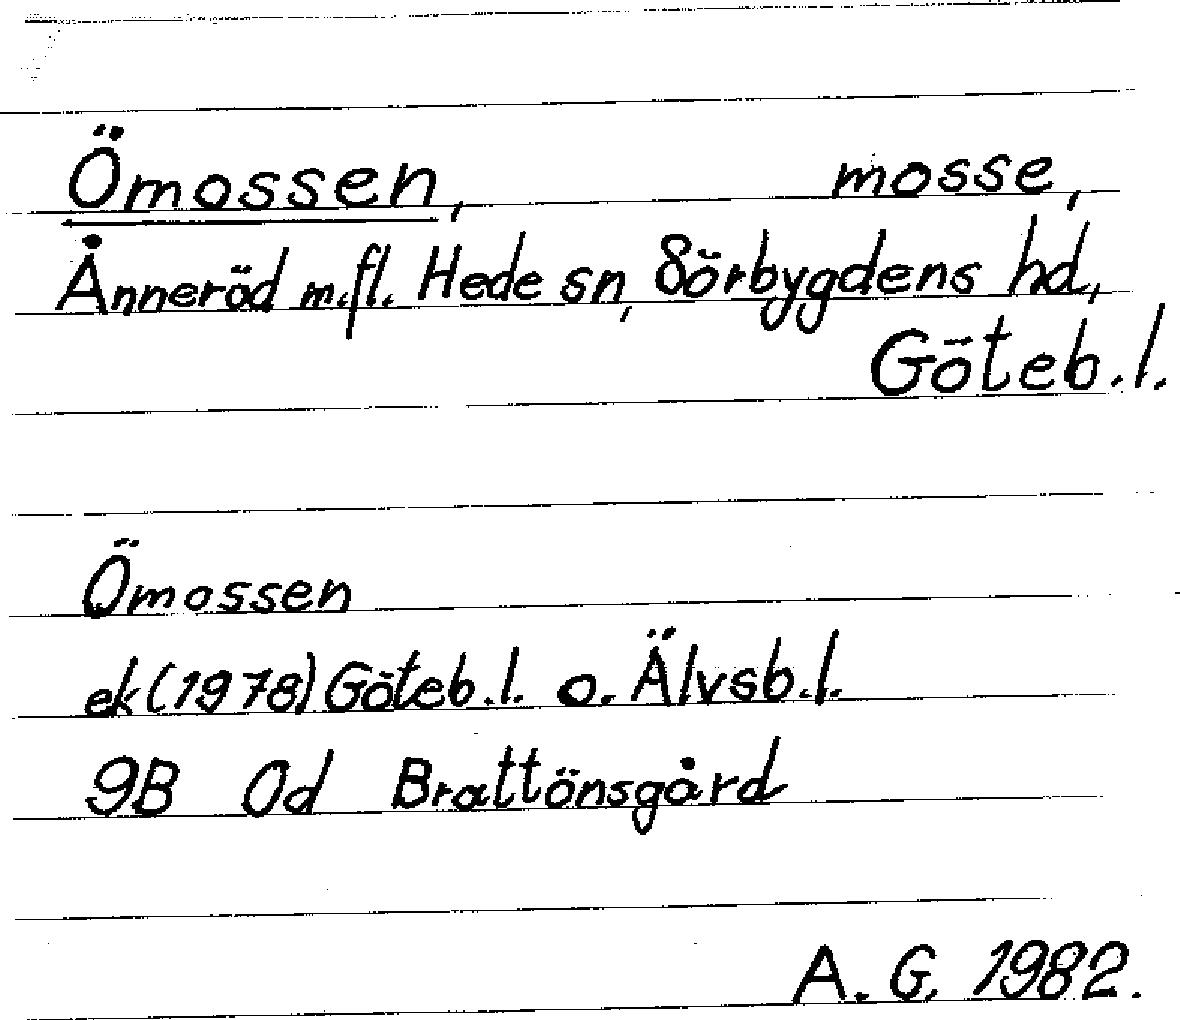 Ömossen, mosse,
Ånneröd m.fl. Hede sn, Sörbygdens hd,
Göteb.l.
Ömossen
ek (1978) Göteb.l. o. Älvsb.l.
9B 0d Brattönsgård
A. G. 1982.